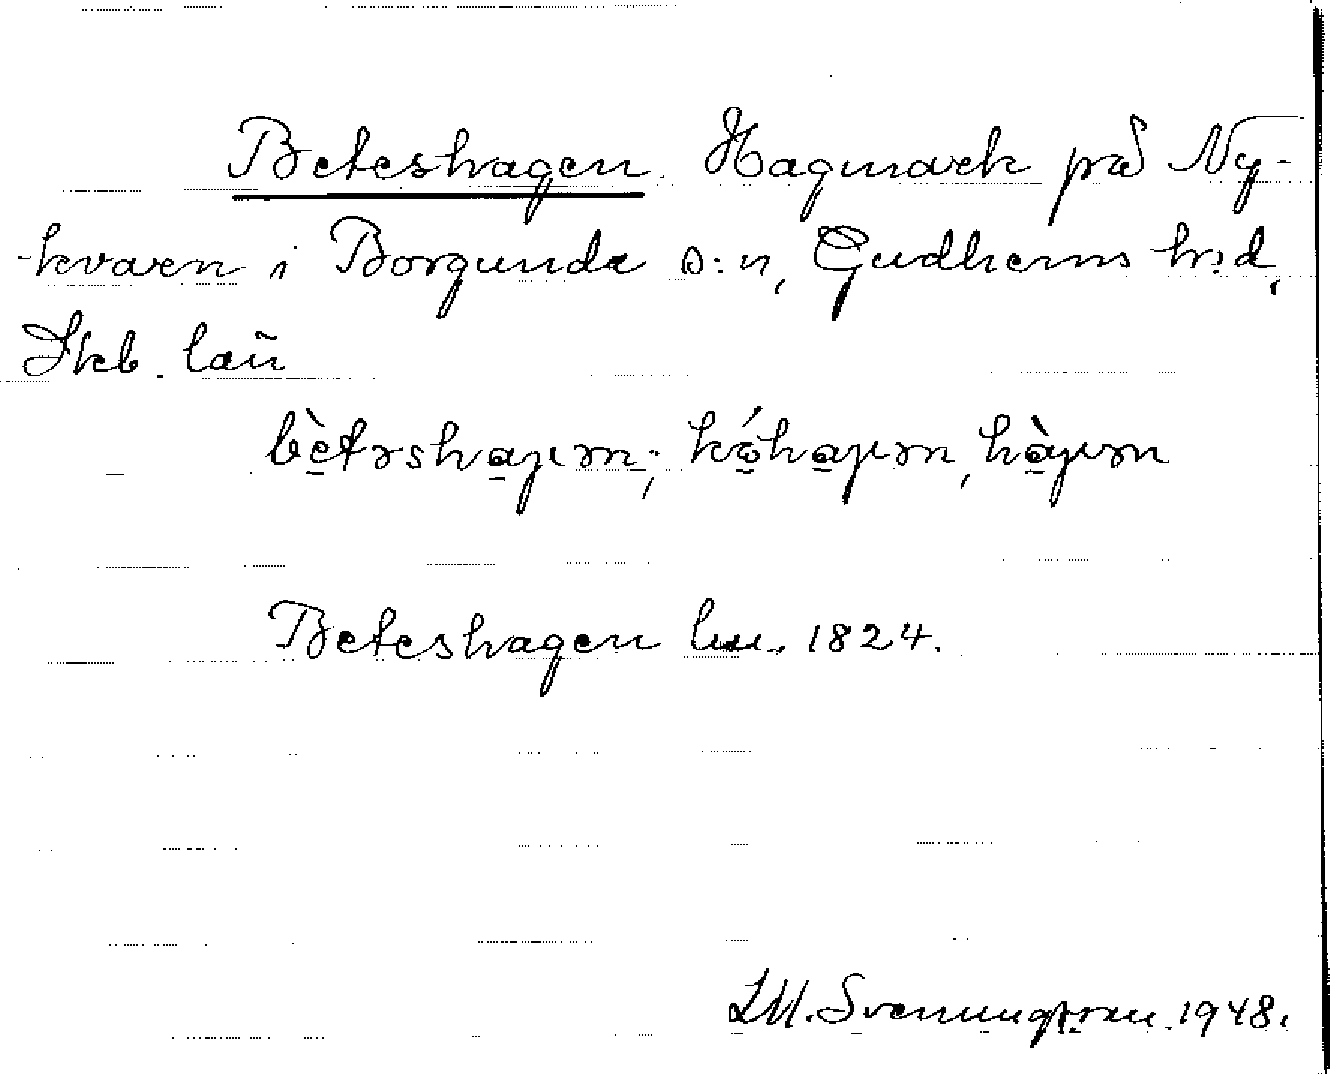 Beteshagen. Hagmark på Ny-
kvarn i Borgunda s:n, Gudhems h:d,
Skb. län
bètəshaɡən; kóhaɡən, hàɡən
Beteshagen lm. 1824.
LM. Svenungsson 1948.